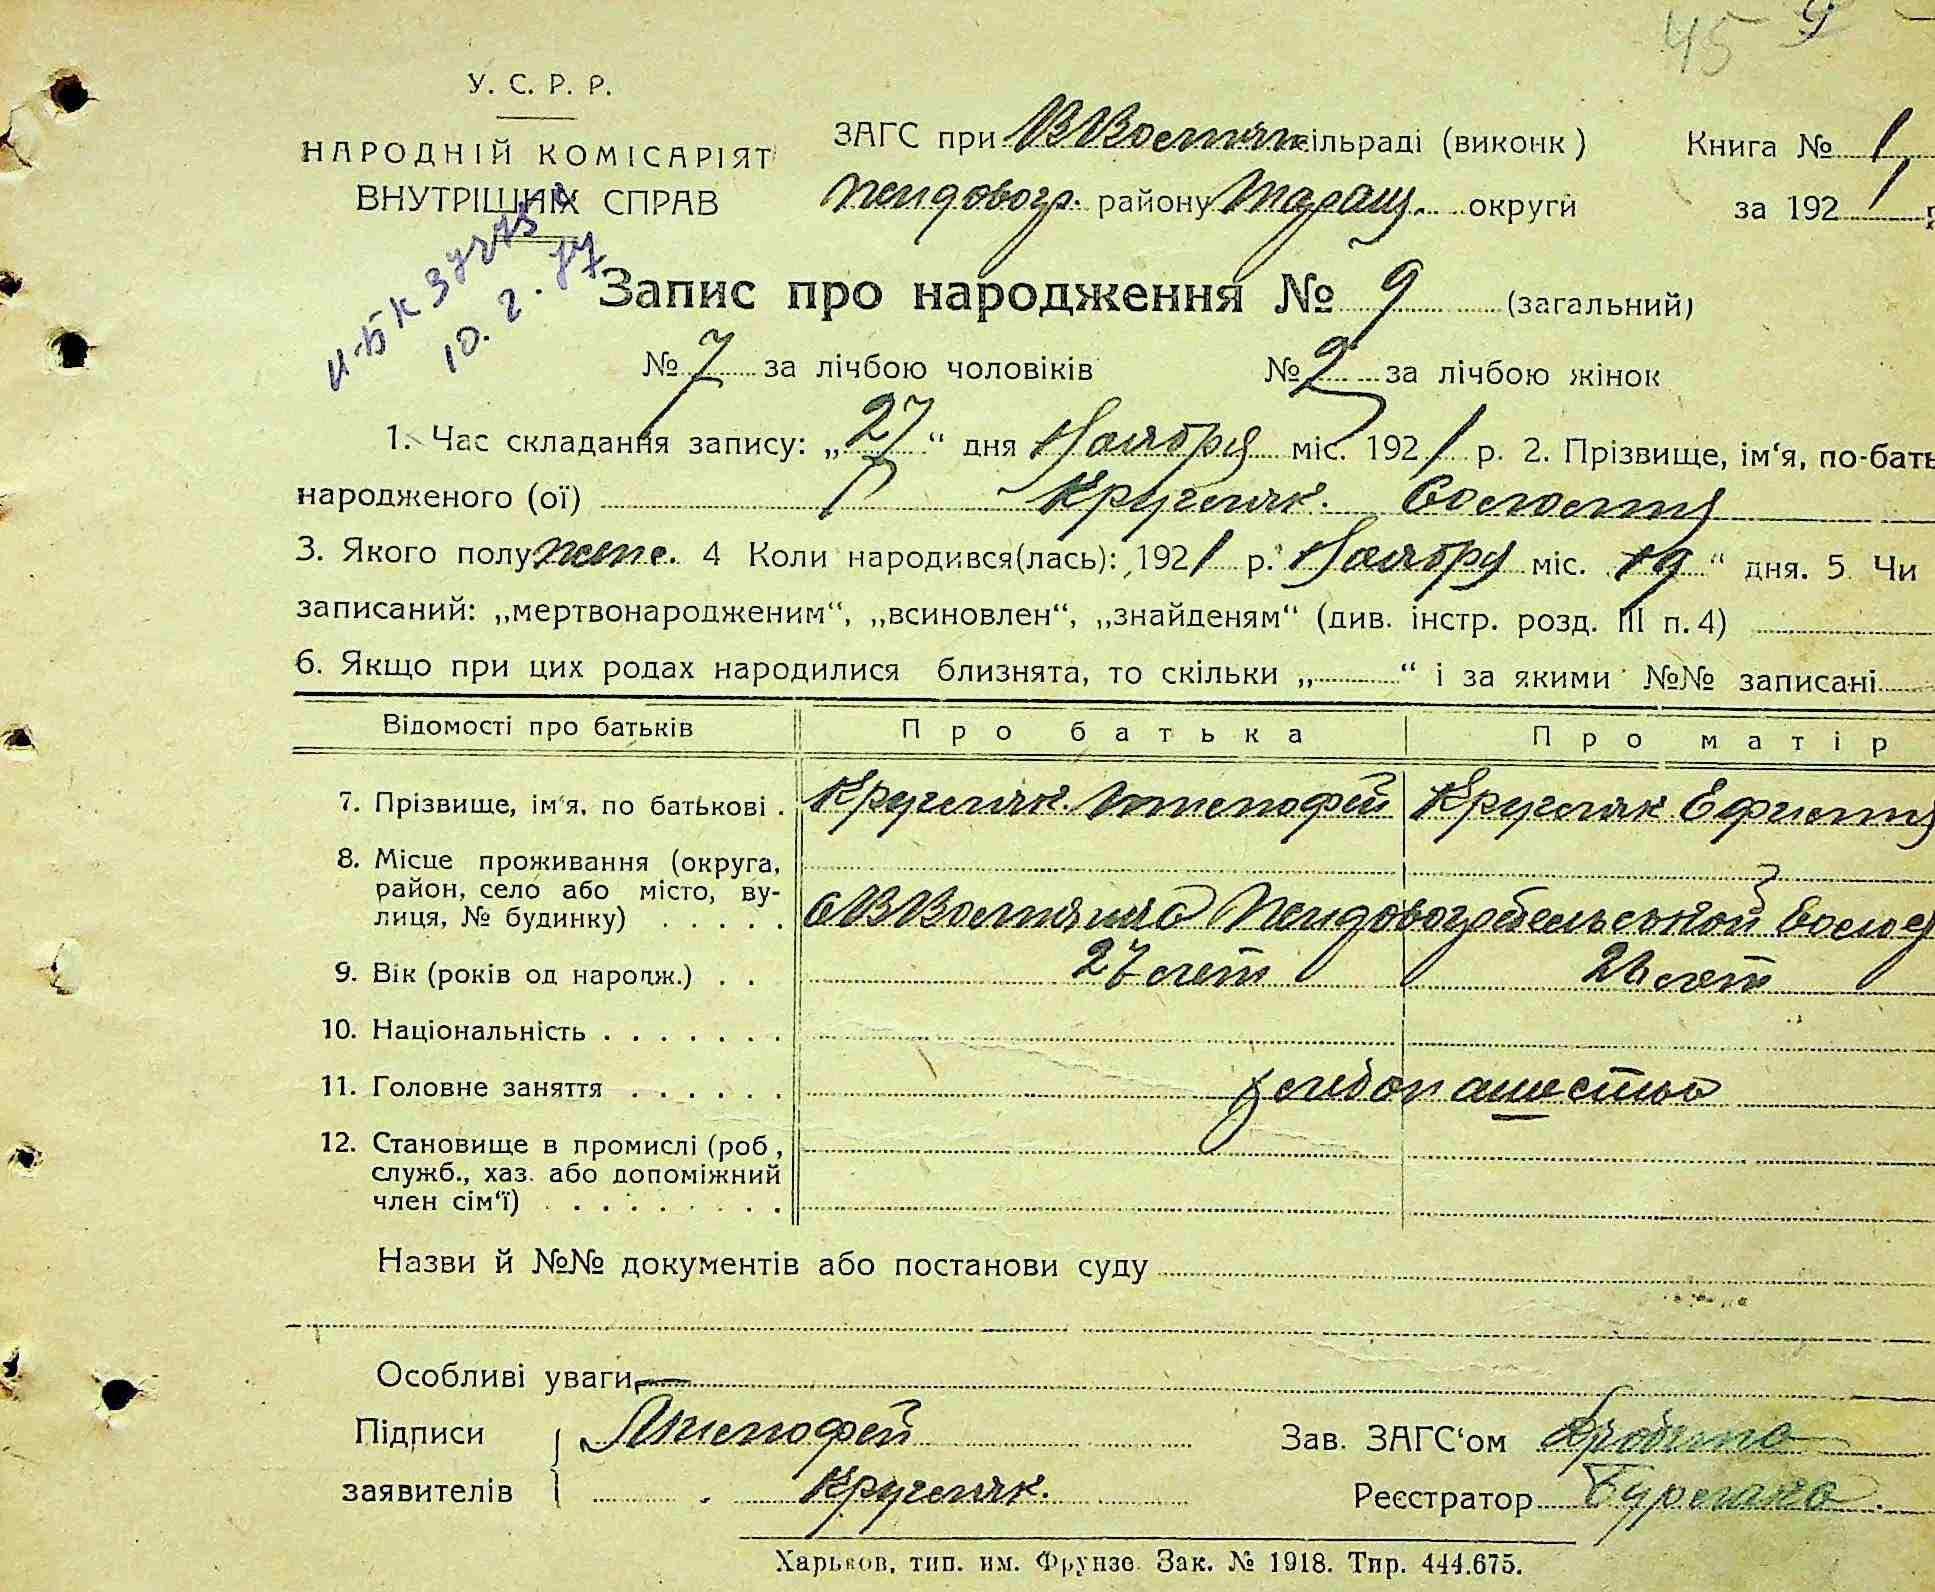 45 9
У. С. Р. Р.
НАРОДНІЙ КОМІСАРІЯТ
ВНУТРІШНІХ СПРАВ
ЗАГС при сільраді (виконк)
районУ Таращ. округи
Книга № 1
за 1921
10. 2. 77
Запис про народження № 9 (загальний)
№ 7 за лічбою чоловіків № 2 за лічбою жінок
1. Час складання запису: „27“ дня Ноября міс. 1921 р. 2. Прізвище, ім‘я, по-бать
народженого (ої) Кругляк.
3. Якого полу жен. 4 Коли народився(лась): 1921 р. Ноября міс. 19“ дня. 5. Чи
записаний: „мертвонародженим“, „всиновлен“, „знайденям“ (див. інстр. розд. III п. 4)
6. Якщо при цих родах народилися близнята, то скільки „ “ і за якими №№ записані
Відомості про батьків Про батька Про матір
7. Прізвище, ім‘я, по батькові . Кругляк Тимофей Кругляк
8. Місце проживання (округа,
район, село або місто, ву-
лиця, № будинку) . . . . .
9. Вік (років од народж.) . . 27 лет 26 лет
10. Національність . . . . . . .
11. Головне заняття . . . . . . хлебопашество
12. Становище в промислі (роб,
служб., хаз. або допоміжний
член сім‘ї) . . . . . . . .
Назви й №№ документів або постанови суду
Особливі уваги —
Підписи Тимофей Зав. ЗАГС‘ом
заявителів Кругляк. Реєстратор
Харьков, тип. им. Фрунзе. Зак. № 1918. Тир. 444.675.